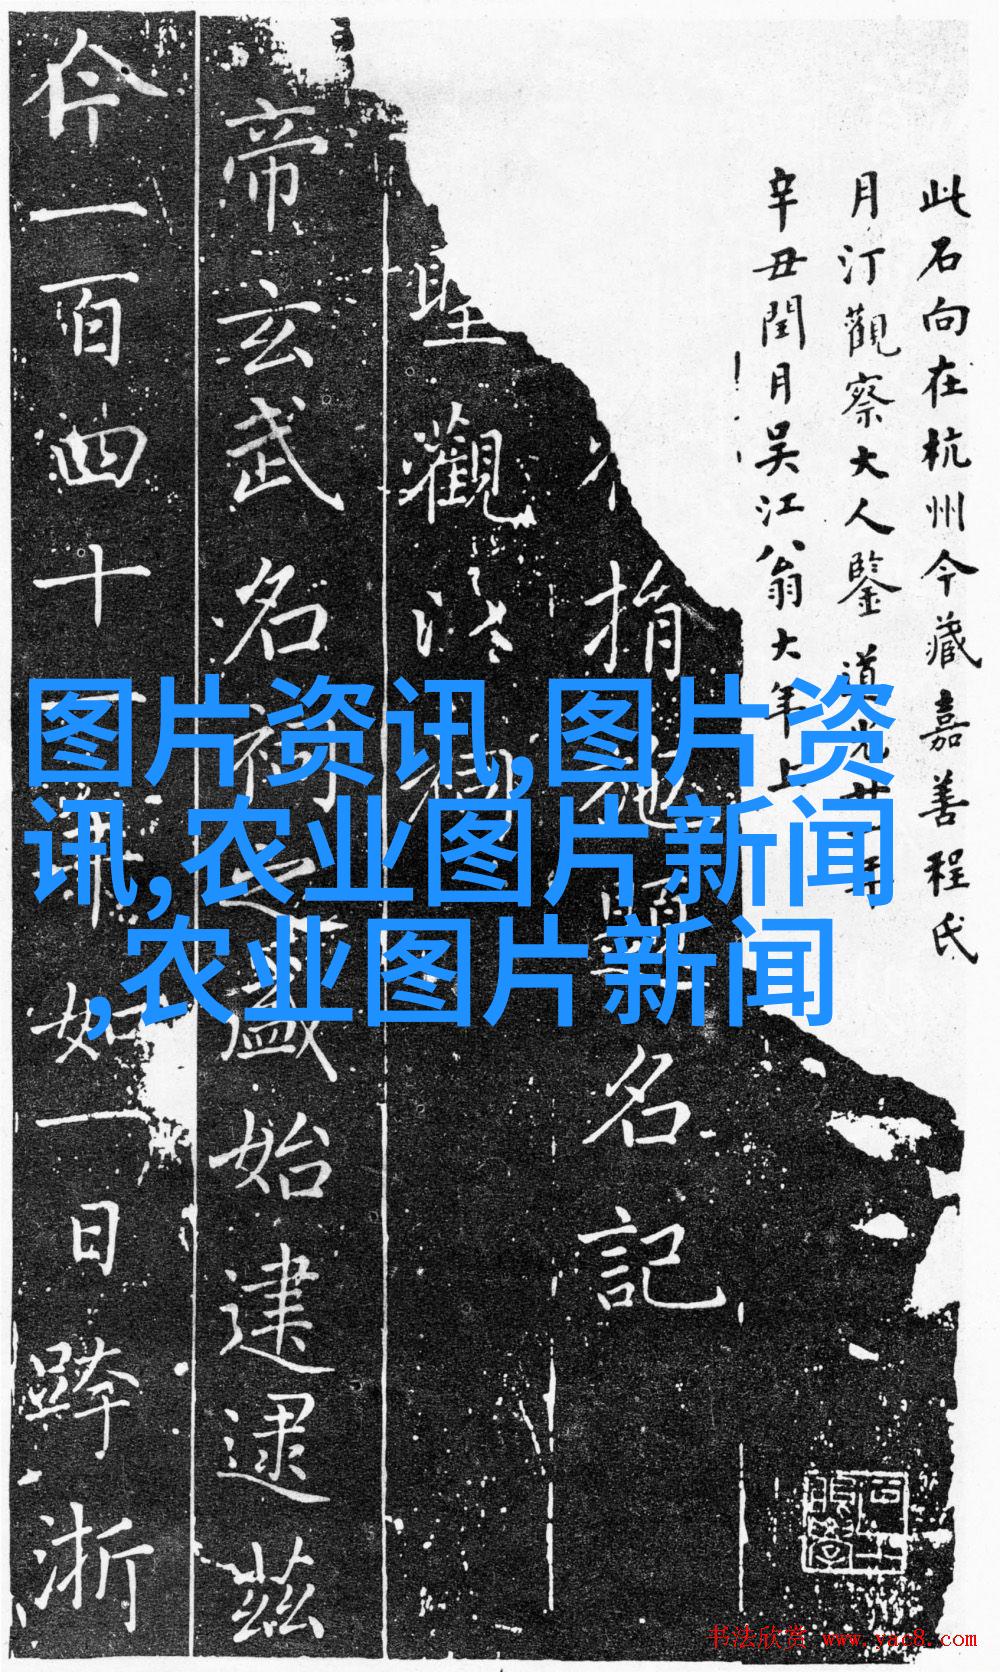 此石向在杭州今藏嘉善程氏
月汀觀察大人鑒 道光
辛丑閏月吳江翁大年上
捐
題名記
聖觀
帝玄武名祠之盛始建逮茲
一百四十
如一日
浙
图片资讯,图片资
讯,农业图片新闻
,农业图片新闻
书法欣赏 www.yac8.com